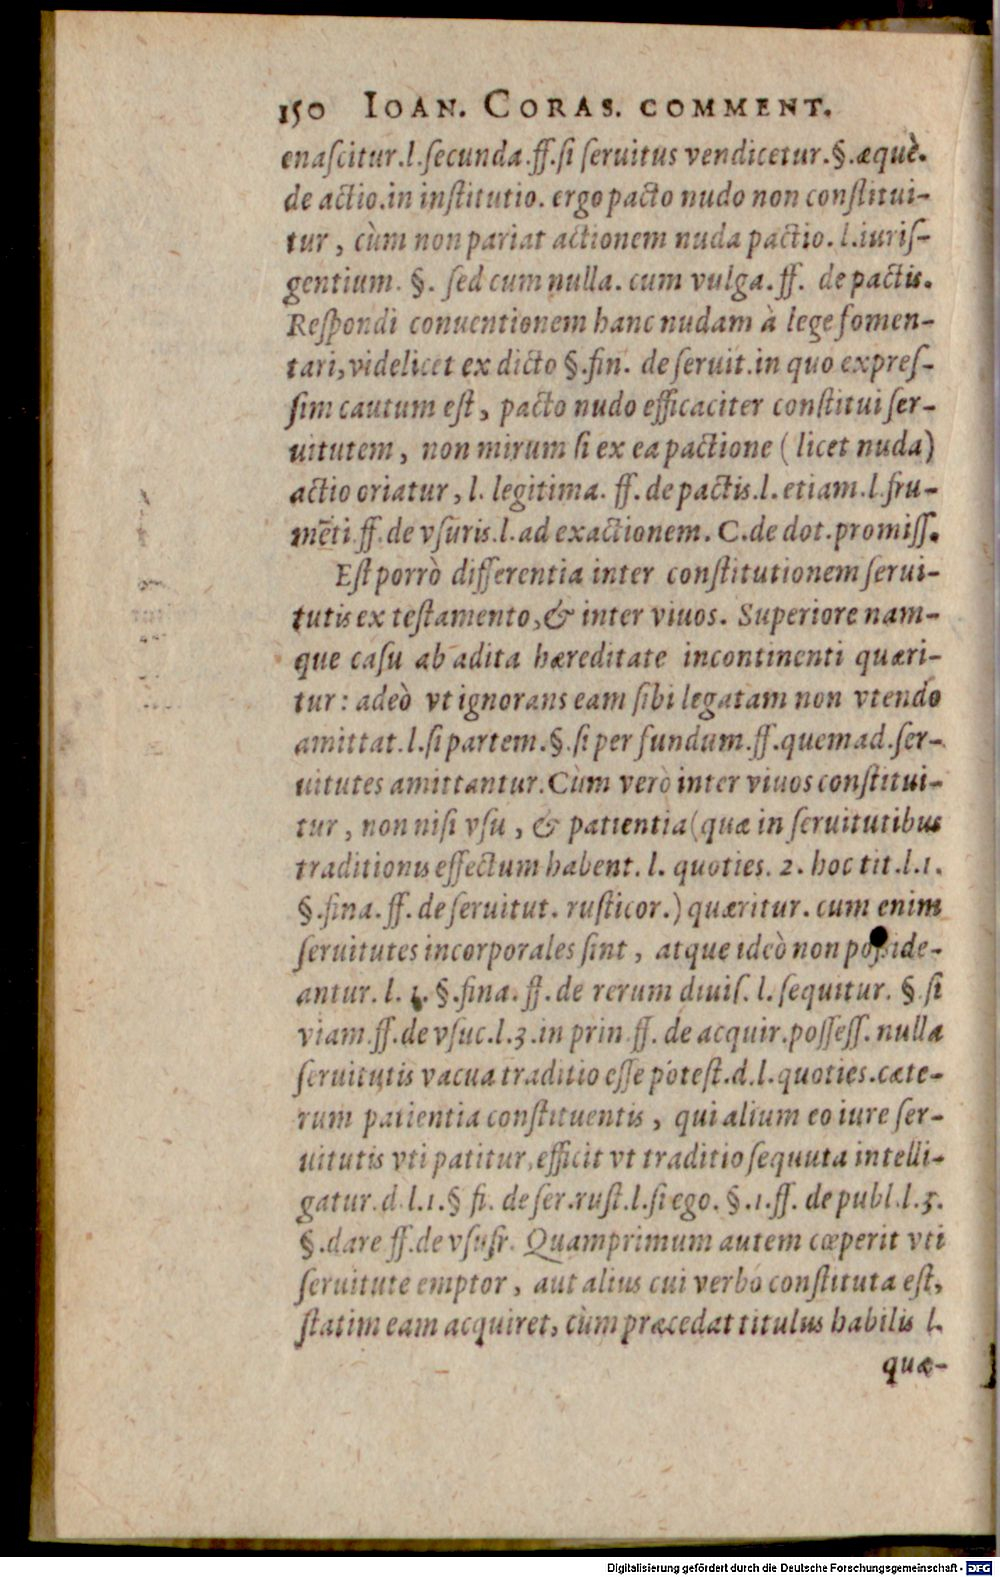 150 IOAN. CORAS. COMMENT.
enaſcitur.l.ſecunda.ff.ſi ſeruitus vendicetur.§.æquè.
de actio.in inſtitutio. ergo pacto nudo non conſtitui-
tur, cùm non pariat actionem nuda pactio. l.iuriſ-
gentium. §. ſed cum nulla. cum vulga. ff. de pactis.
Reſpondi conuentionem hanc nudam à lege fomen-
tari, videlicet ex dicto §.fin. de ſeruit.in quo expreſ-
ſim cautum eſt, pacto nudo efficaciter conſtitui ſer-
uitutem, non mirum ſi ex ea pactione (licet nuda)
actio oriatur, l. legitima. ff. de pactis.l. etiam.l.fru-
mēti.ff.de vſuris.l.ad exactionem. C.de dot.promiſſ.
Eſt porrò differentia inter conſtitutionem ſerui-
tutis ex teſtamento, & inter viuos. Superiore nam-
que caſu ab adita hæreditate incontinenti quæri-
tur: adeò vt ignorans eam ſibi legatam non vtendo
amittat.l.ſi partem.§.ſi per fundum.ff.quemad.ſer-
uitutes amittantur. Cùm verò inter viuos conſtitui-
tur, non niſi vſu, & patientia (quæ in ſeruitutibus
traditionis effectum habent. l. quoties. 2. hoc tit.l.1.
§.fina. ff. de ſeruitut. ruſticor.) quæritur. cum enim
ſeruitutes incorporales ſint, atque ideò non poſside-
antur. l. 1. §.fina. ff. de rerum diuiſ. l. ſequitur. §.ſi
viam.ff.de vſuc.l.3.in prin.ff. de acquir.poſſeſſ. nulla
ſeruitutis vacua traditio eſſe poteſt.d.l.quoties.cæte-
rum patientia conſtituentis, qui alium eo iure ſer-
uitutis vti patitur, efficit vt traditio ſequuta intelli-
gatur.d.l.1.§ fi. de ſer.ruſt.l.ſi ego. §.1.ff. de publ.l.3.
§.dare ff.de vſufr. Quamprimum autem cœperit vti
ſeruitute emptor, aut alius cui verbo conſtituta eſt,
ſtatim eam acquiret, cùm præcedat titulus habilis l.
quæ-
Digitalisierung gefördert durch die Deutsche Forschungsgemeinschaft - DFG